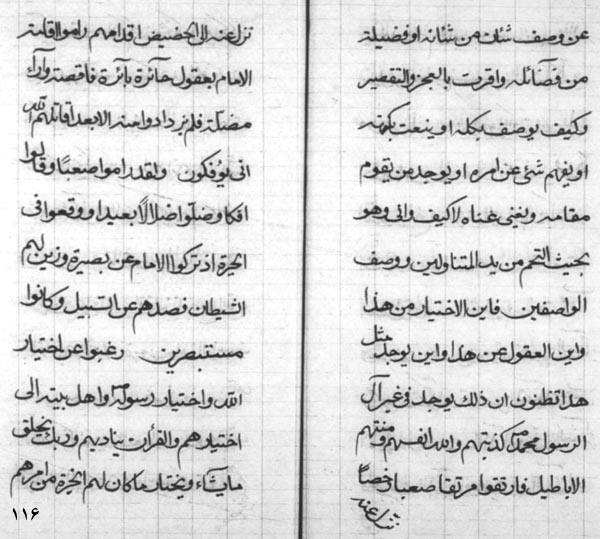 عن وصف شئان من شئانه او فضيلة
من فضائله واقرت بالعجز والتقصير
وكيف يوصف بكله او ينعت بكنهه
او يفهم شئ عن امره او يوجد من يقوم
مقامه ويغنى غناه لا كيف وانى وهو
بحيث النجم من يد المتناولين ووصف
الواصفين فاين الاختيار من هذا
واين العقول عن هذا واين يوجد مثل
هذا تظنون ان ذلك يوجد فى غير آل
الرسول محمد كذبتهم والله انفسهم ومنتهم
الاباطيل فارتقوا مرتقا صعبا دحضا
تزل عنه
تزل عنه الى الحضيض اقدامهم راموا اقامة
الامام بعقول حائرة بائرة ناقصة وآراء
مضلة فلم يزدادوا منه الا بعدا قاتلهم الله
انى يؤفكون ولقد راموا صعبا وقالوا
افكا وضلوا ضلالا بعيدا ووقعوا فى
الحيرة اذ تركوا الامام عن بصيرة وزين لهم
الشيطان فصدهم عن السبيل وكانوا
مستبصرين رغبوا عن اختيار
الله واختيار رسوله واهل بيته الى
اختيارهم والقرآن يناديهم وربك يخلق
ما يشاء ويختار ما كان لهم الخيرة من امرهم
١١۶